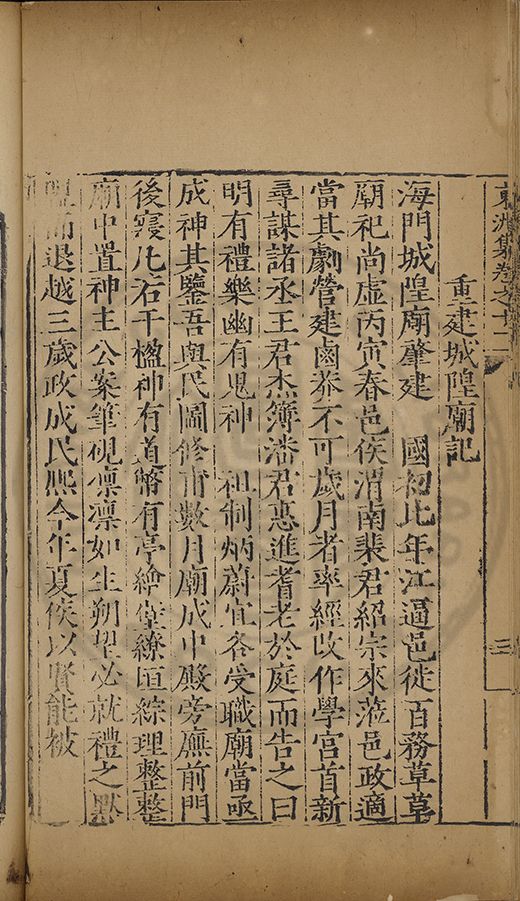 東洲集卷之十二
三
重建城隍廟記
海門城隍廟肇建 國初比年江逼邑徙百務草草
廟祀尚虛丙寅春邑侯渭南裴君紹宗來蒞邑政適
當其劇營建鹵莽不可歲月者率經改作學宮首新
尋謀諸丞王君杰簿潘君惠進耆老於庭而告之曰
明有禮樂幽有鬼神 祖制炳蔚宜各受職廟當亟
成神其鑒吾與民圖修甫數月廟成中殿旁廡前門
後寢凡若干楹神有道幣有亭繪堂繚垣綜理整整
廟中置神主公案筆硯凛凛如生朔望必就禮之
而退越三歲政成民熙今年夏侯以賢能被